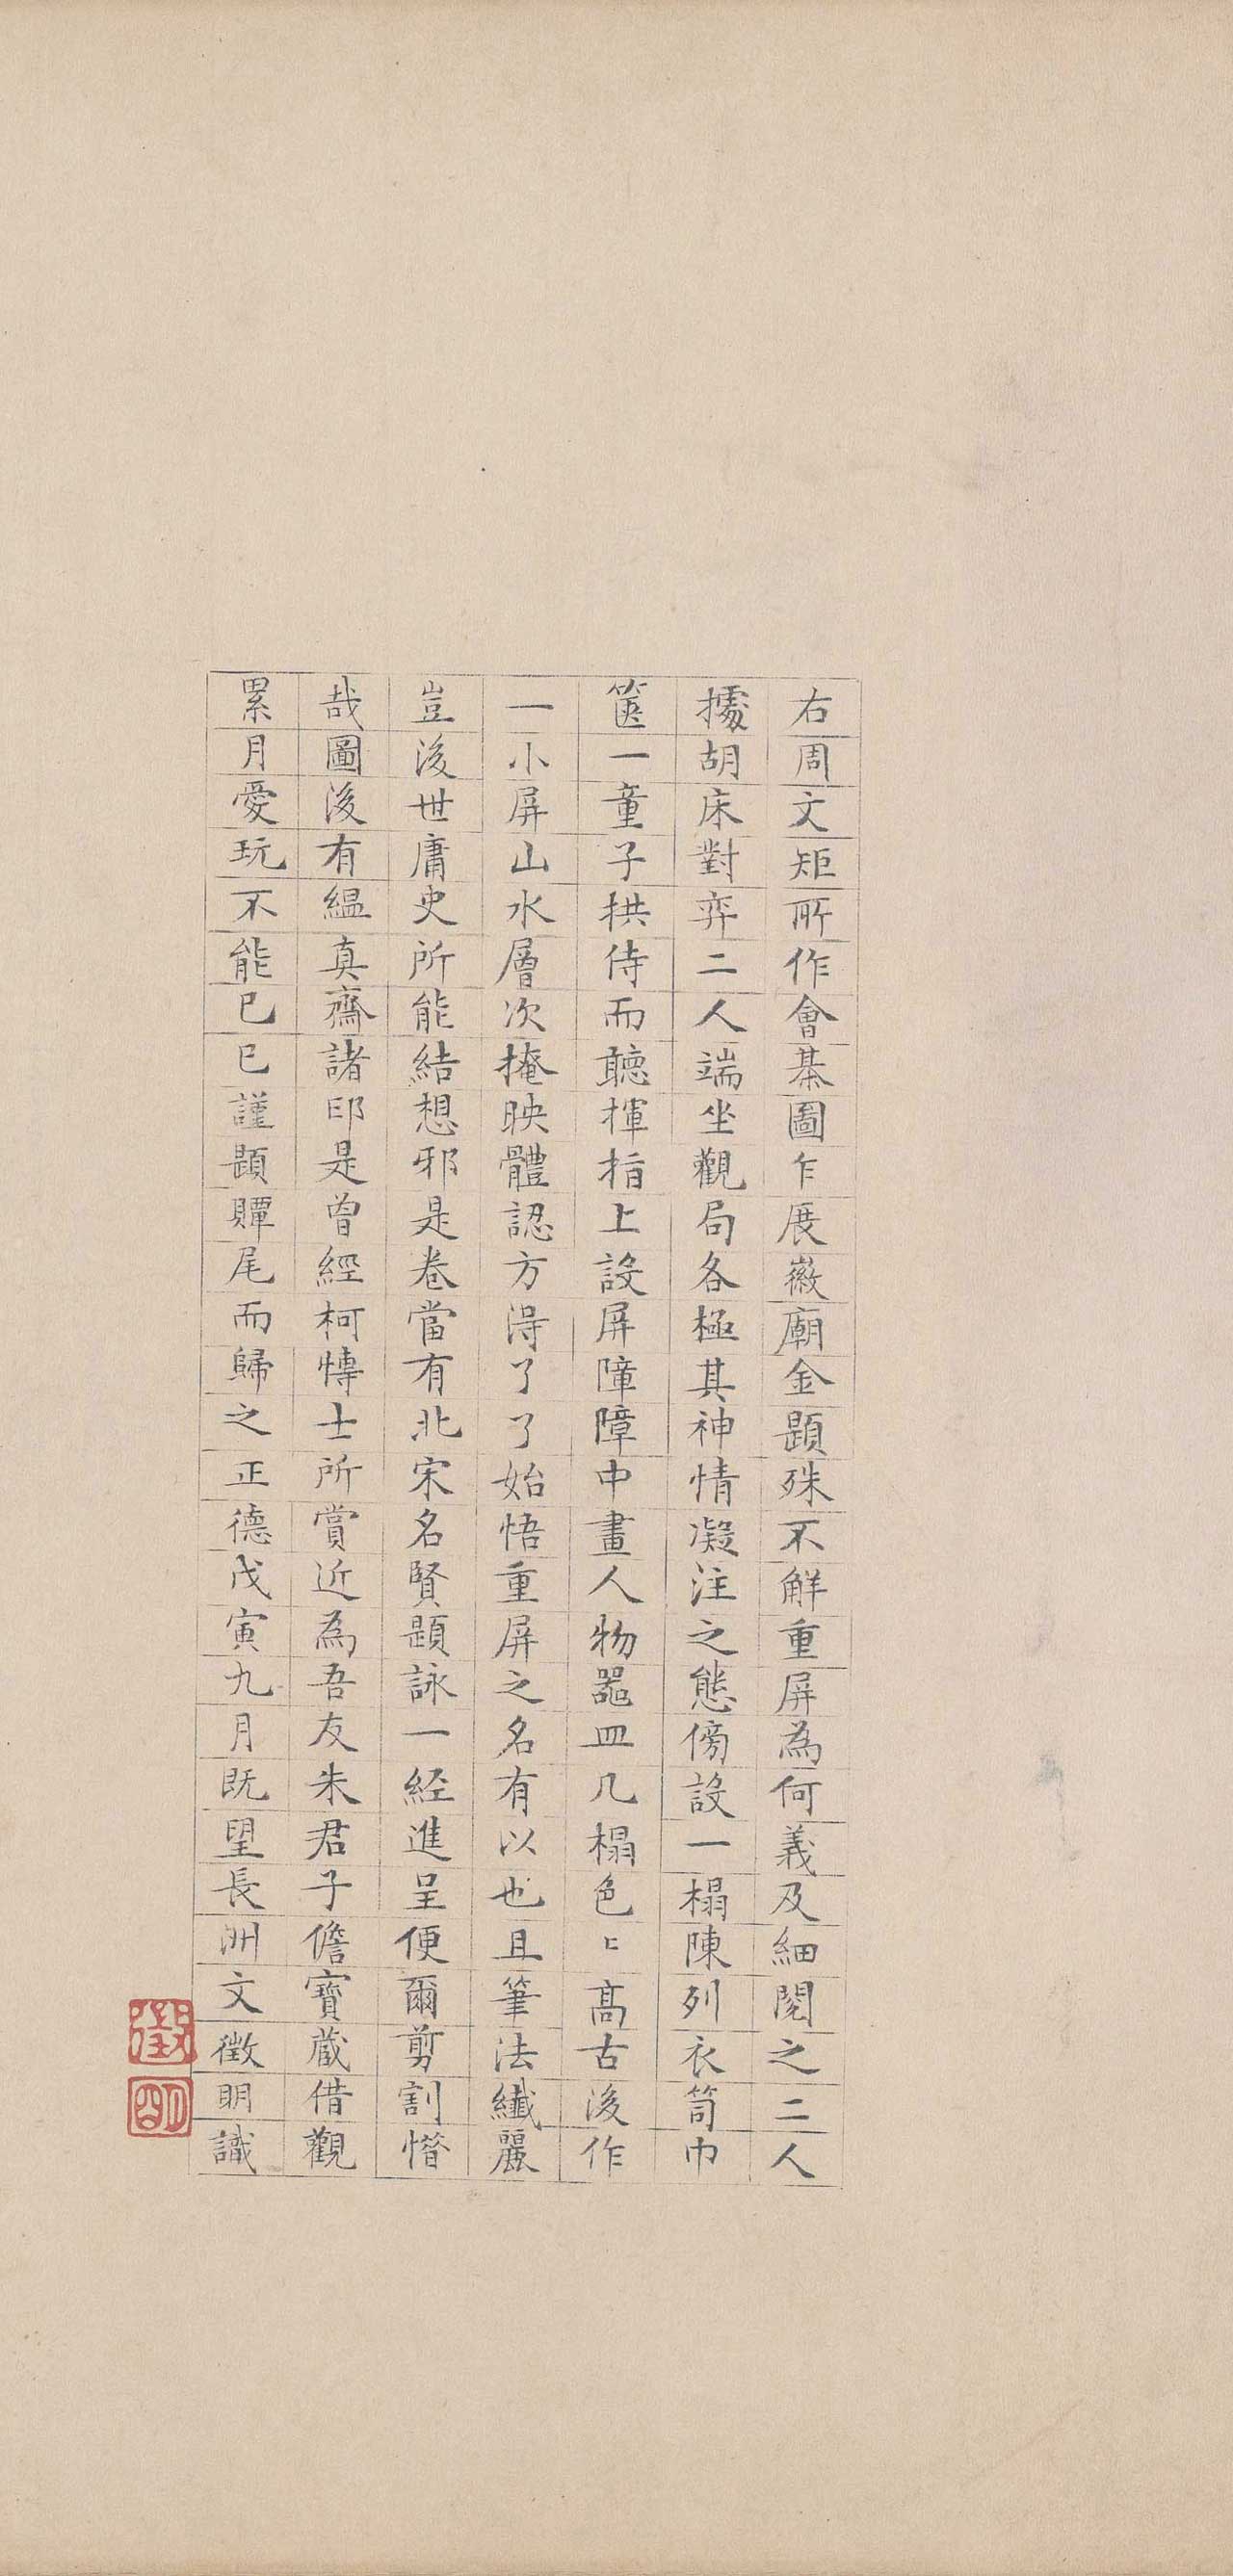 右周文矩所作會棊圖乍展徽廟金題殊不解重屏為何義及細閱之二人
據胡床對弈二人端坐觀局各極其神情凝注之態傍設一榻陳列衣笥巾
篋一童子拱侍而聽揮指上設屏障障中畫人物器皿几榻色〻高古後作
一小屏山水層次掩映體認方得了了始悟重屏之名有以也且筆法纖麗
豈後世庸史所能結想邪是卷當有北宋名賢題詠一経進呈便爾剪割惜
哉圖後有緼真齋諸印是曾經柯愽士所賞近為吾友朱君子儋寶蔵借觀
累月愛玩不能已已謹題贉尾而歸之正德戊寅九月既望長洲文徵明識
徵
明